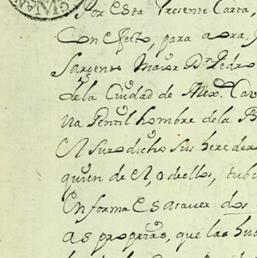 Por esta presente Carta,
Con efecto, para aora, y
Sargento Maior Dn Pedro
de la Ciudad de Mexco. Cav
na Gentil hombre de la B
A su so dicho sus hered er
quien de él, o de ellos, tub
en forma es a saver dos
as proprias, que las hu